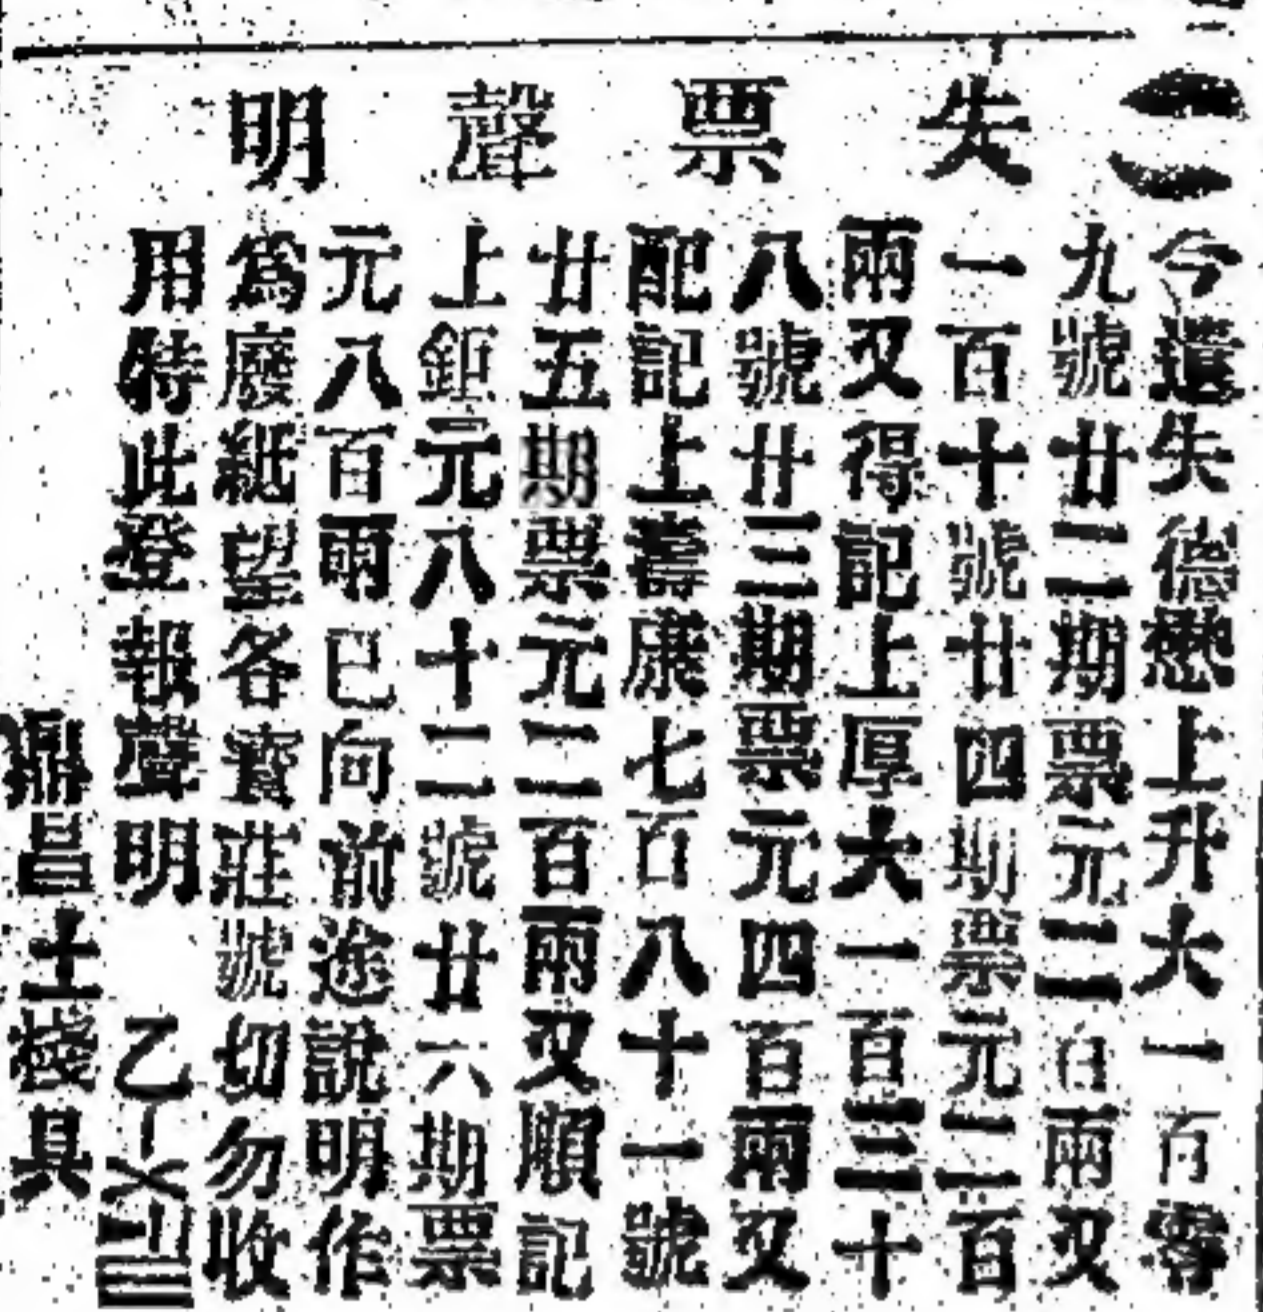 失票聲明
今遺失德懋上升大一百零
九號廿二期票元二百兩又
一百十號廿四期票元二百
兩又得記上厚大一百三十
八號廿三期票元四百兩又
配記上壽康七百八十一號
廿五期票元二百兩又順記
上鉅元八十二號廿六期票
元八百兩已向前途說明作
為廢紙望各寶莊號切勿收
用特此登報聲明 乙
鼎昌土棧具